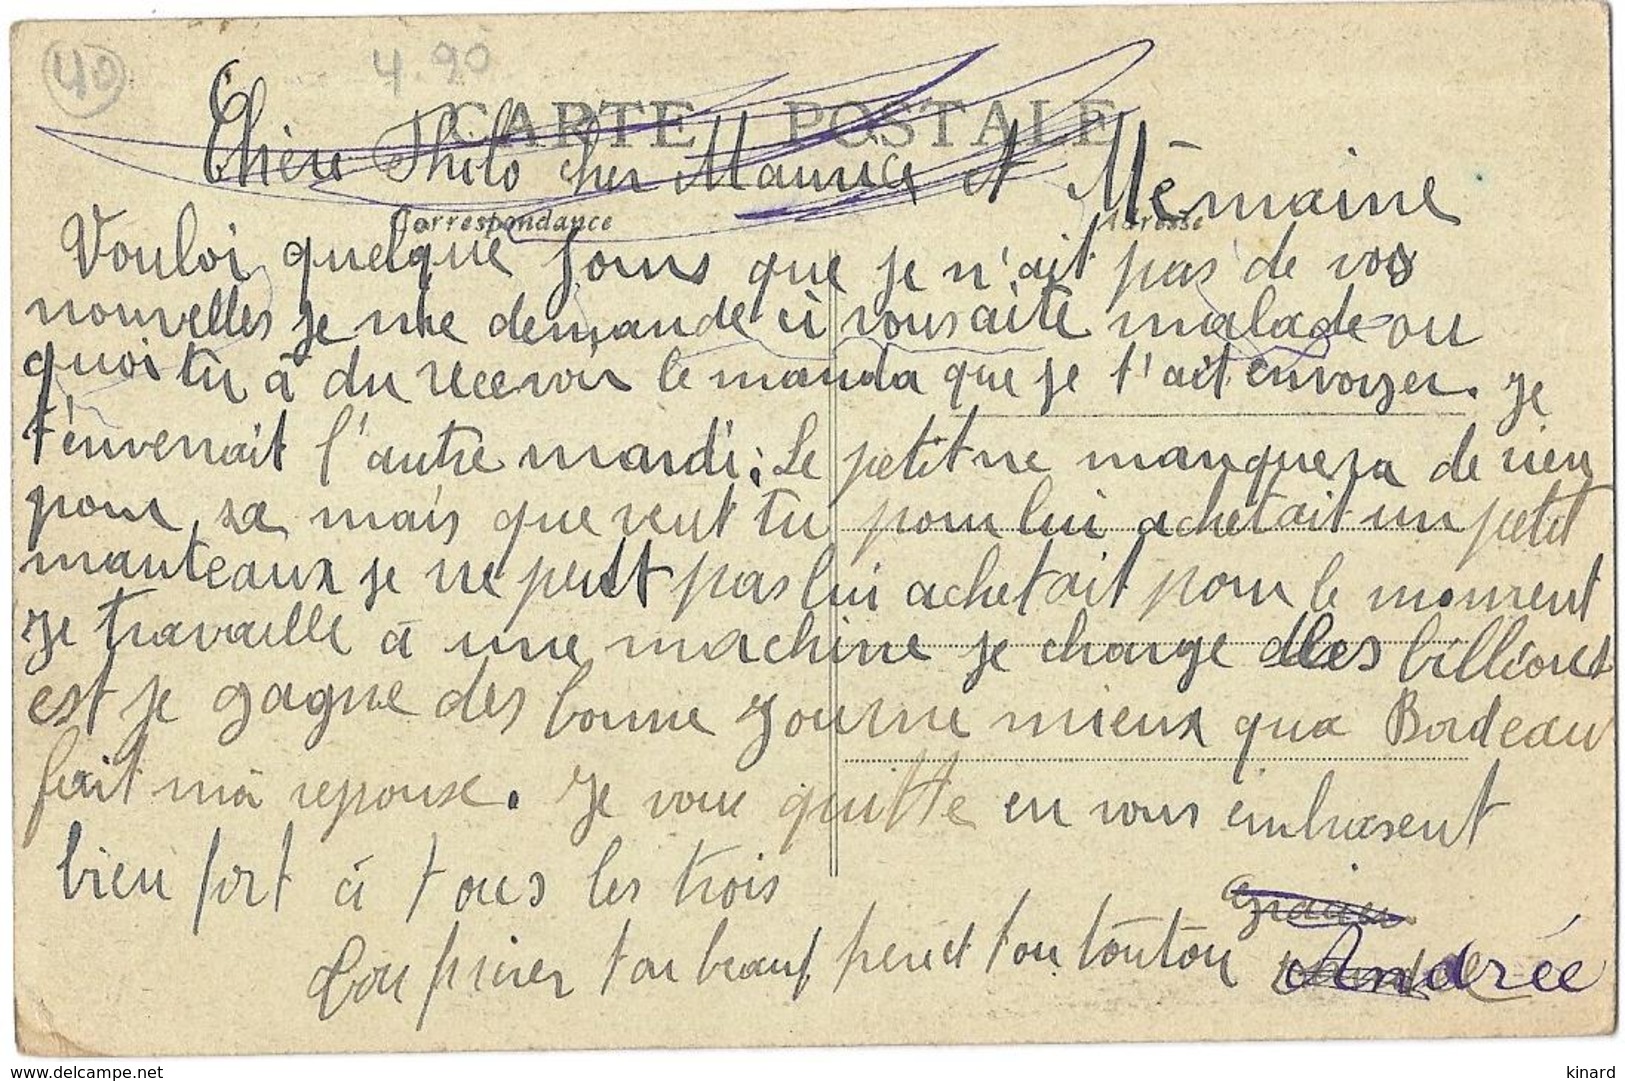 40
4.90
CARTE POSTALE
Chère Philo cher Maurice et Mémaine
Correspondance
Adresse
Vouloi quelque Jours que je n'ait pas de vos
nouvelles je me demande ci vous aite malade ou
quoi tu à du recevoir le manda que je t'ait envoyer. Je
t'envenait l'autre mardi. Le petit ne manquera de rien
pour sa mais que veut tu pour lui achetait un petit
manteaux je ne peut pas lui achetait pour le moment
Je travaille à une machine je charge des billeons
est je gagne des bonne Journe mieux qua Bordeau
fait ma reponse. Je vous quitte en vous embrasent
bien fort à tous les trois
ton beauf ton tonton Andrée
kinard